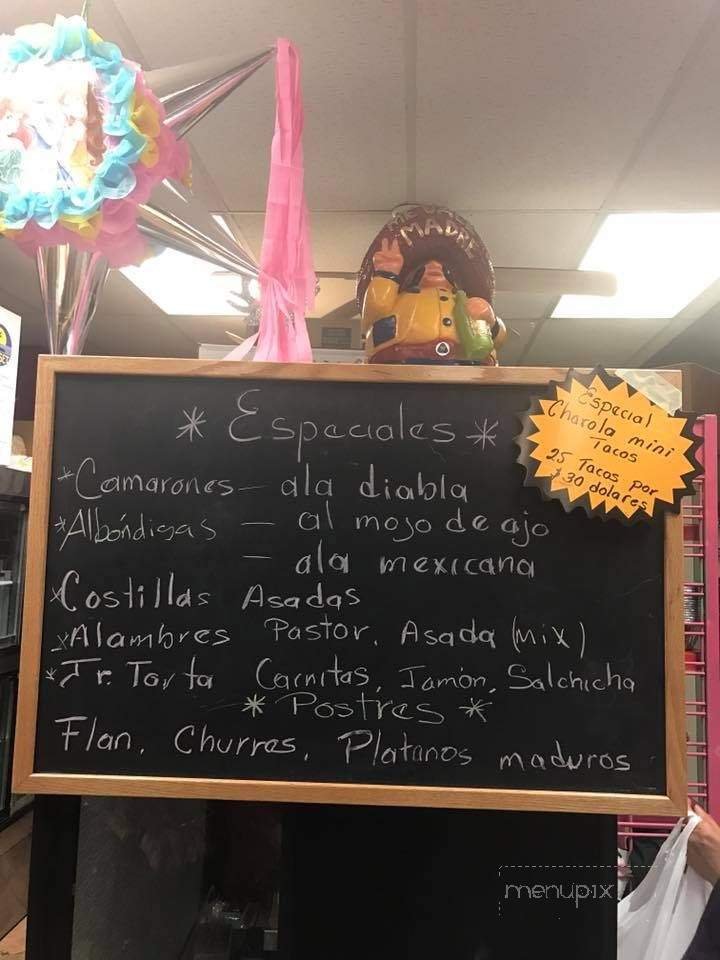 MADRE
* Especiales *
Especial
Charola mini
Tacos
25 Tacos por
$30 dolares
*Camarones – ala diabla
*Albóndigas – al mojo de ajo
– ala mexicana
*Costillas Asadas
*Alambres Pastor, Asada (Mix)
*Tr. Torta Carnitas, Jamón, Salchicha
* Postres *
Flan, Churros, Platanos maduros
menupix